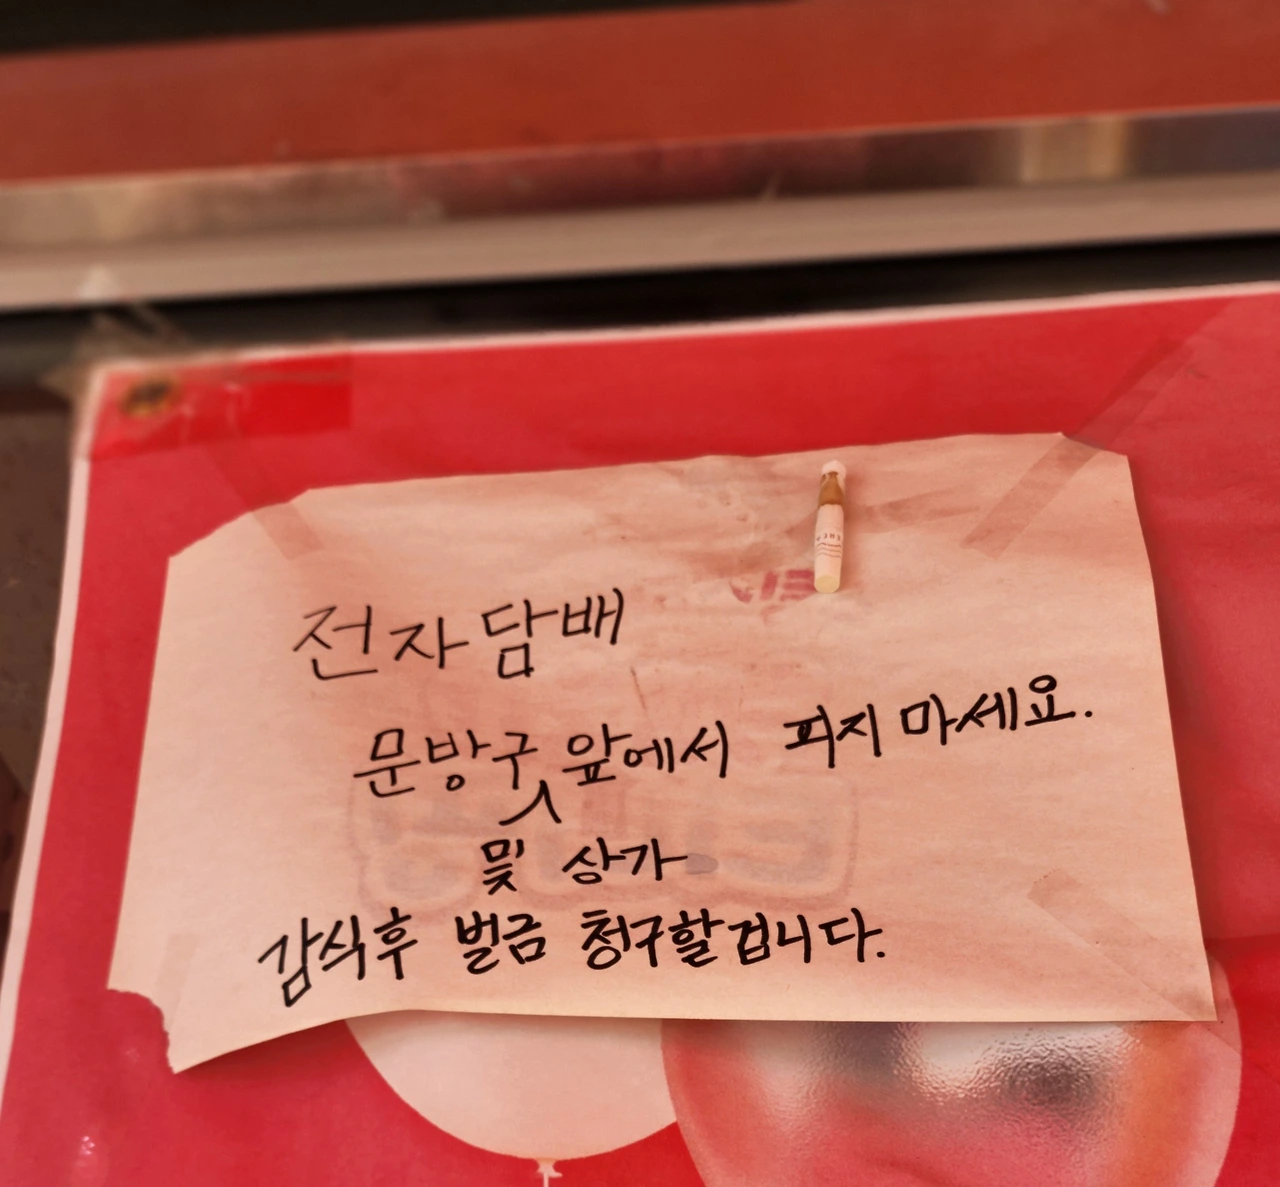 전자담배
문방구 앞에서 피지 마세요.
및 상가
감식후 벌금 청구할겁니다.